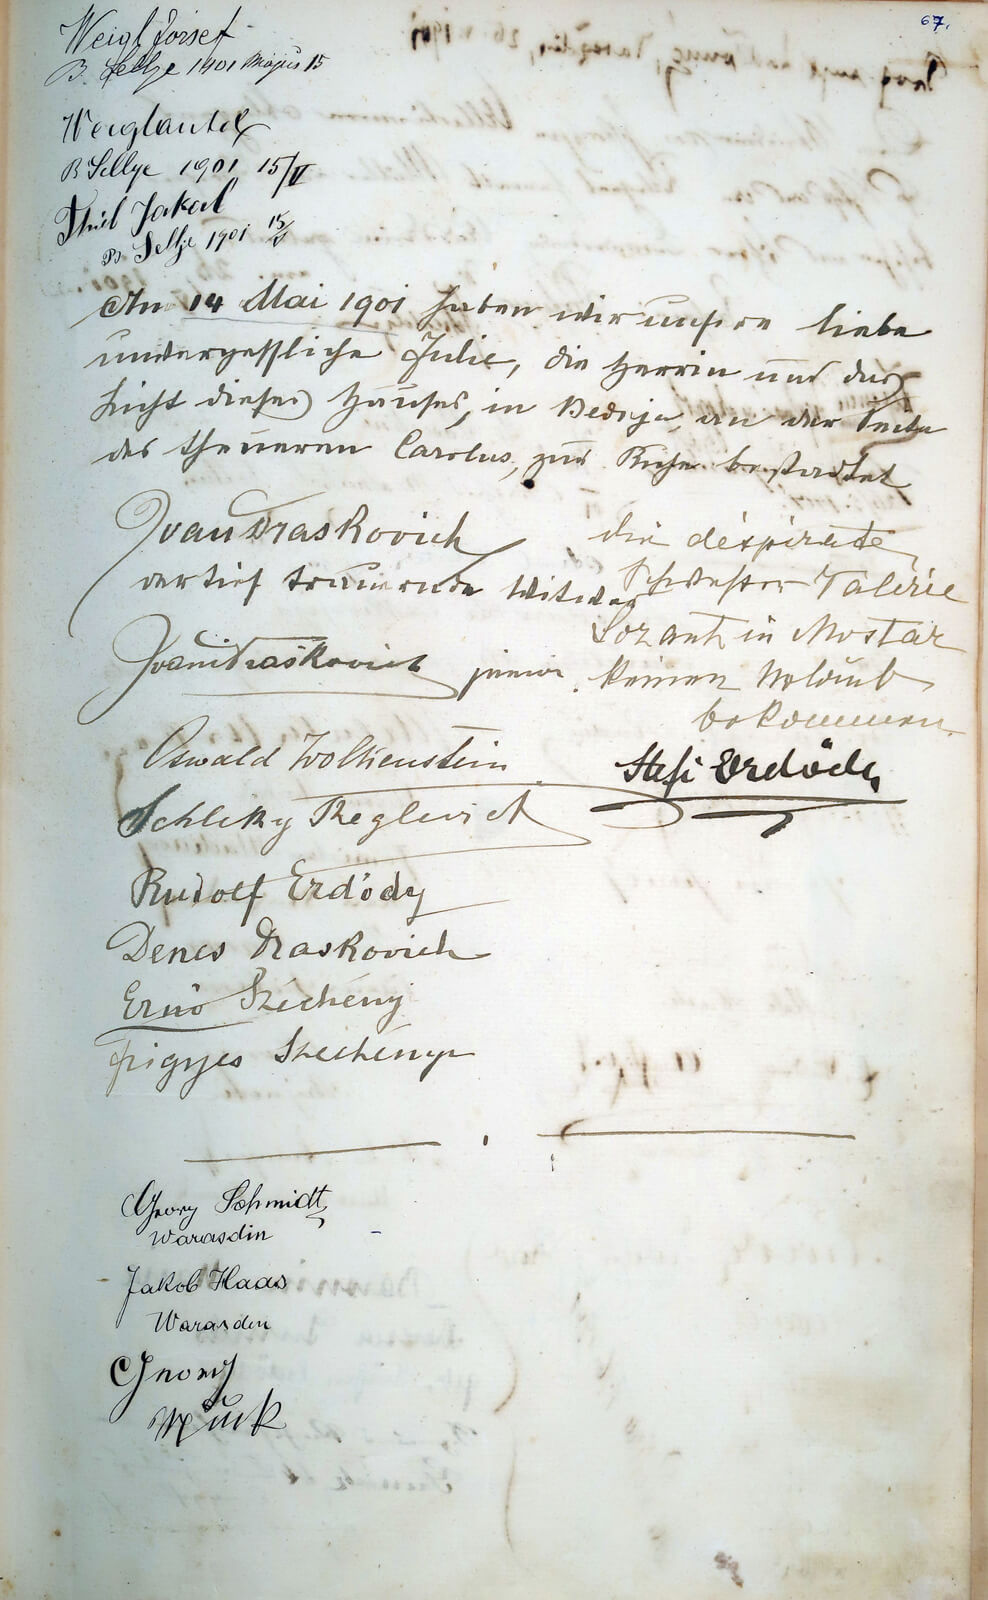 67.
Weigl József
B. Sellye 1901 Május 15
Weigl Antal
B Sellye 1901 15/V
Thiel Jakab
B Sellje 1901 15/V
Am 14 Mai 1901 haben wir unsere liebe
unvergessliche Julie, die Herrin und das
Licht dieses Hauses, in Bednja, an der Seite
des theueren Carolus, zur Ruhe bestattet
Ivan Draskovich
der tief trauernde Witwer
Ivan Draskovich junior.
die desperate
Schwester Valérie
in Mostar
keinen Urlaub
bekommen.
Oswald Wolkenstein
Stefi Erdödy
Schlikky Keglevich
Rudolf Erdödy
Denes Draskovich
Ernö Széchényi
Frigyes Széchényi
Georg Schmidt
Warasdin
Jakob Haas
Warasdin
Georg